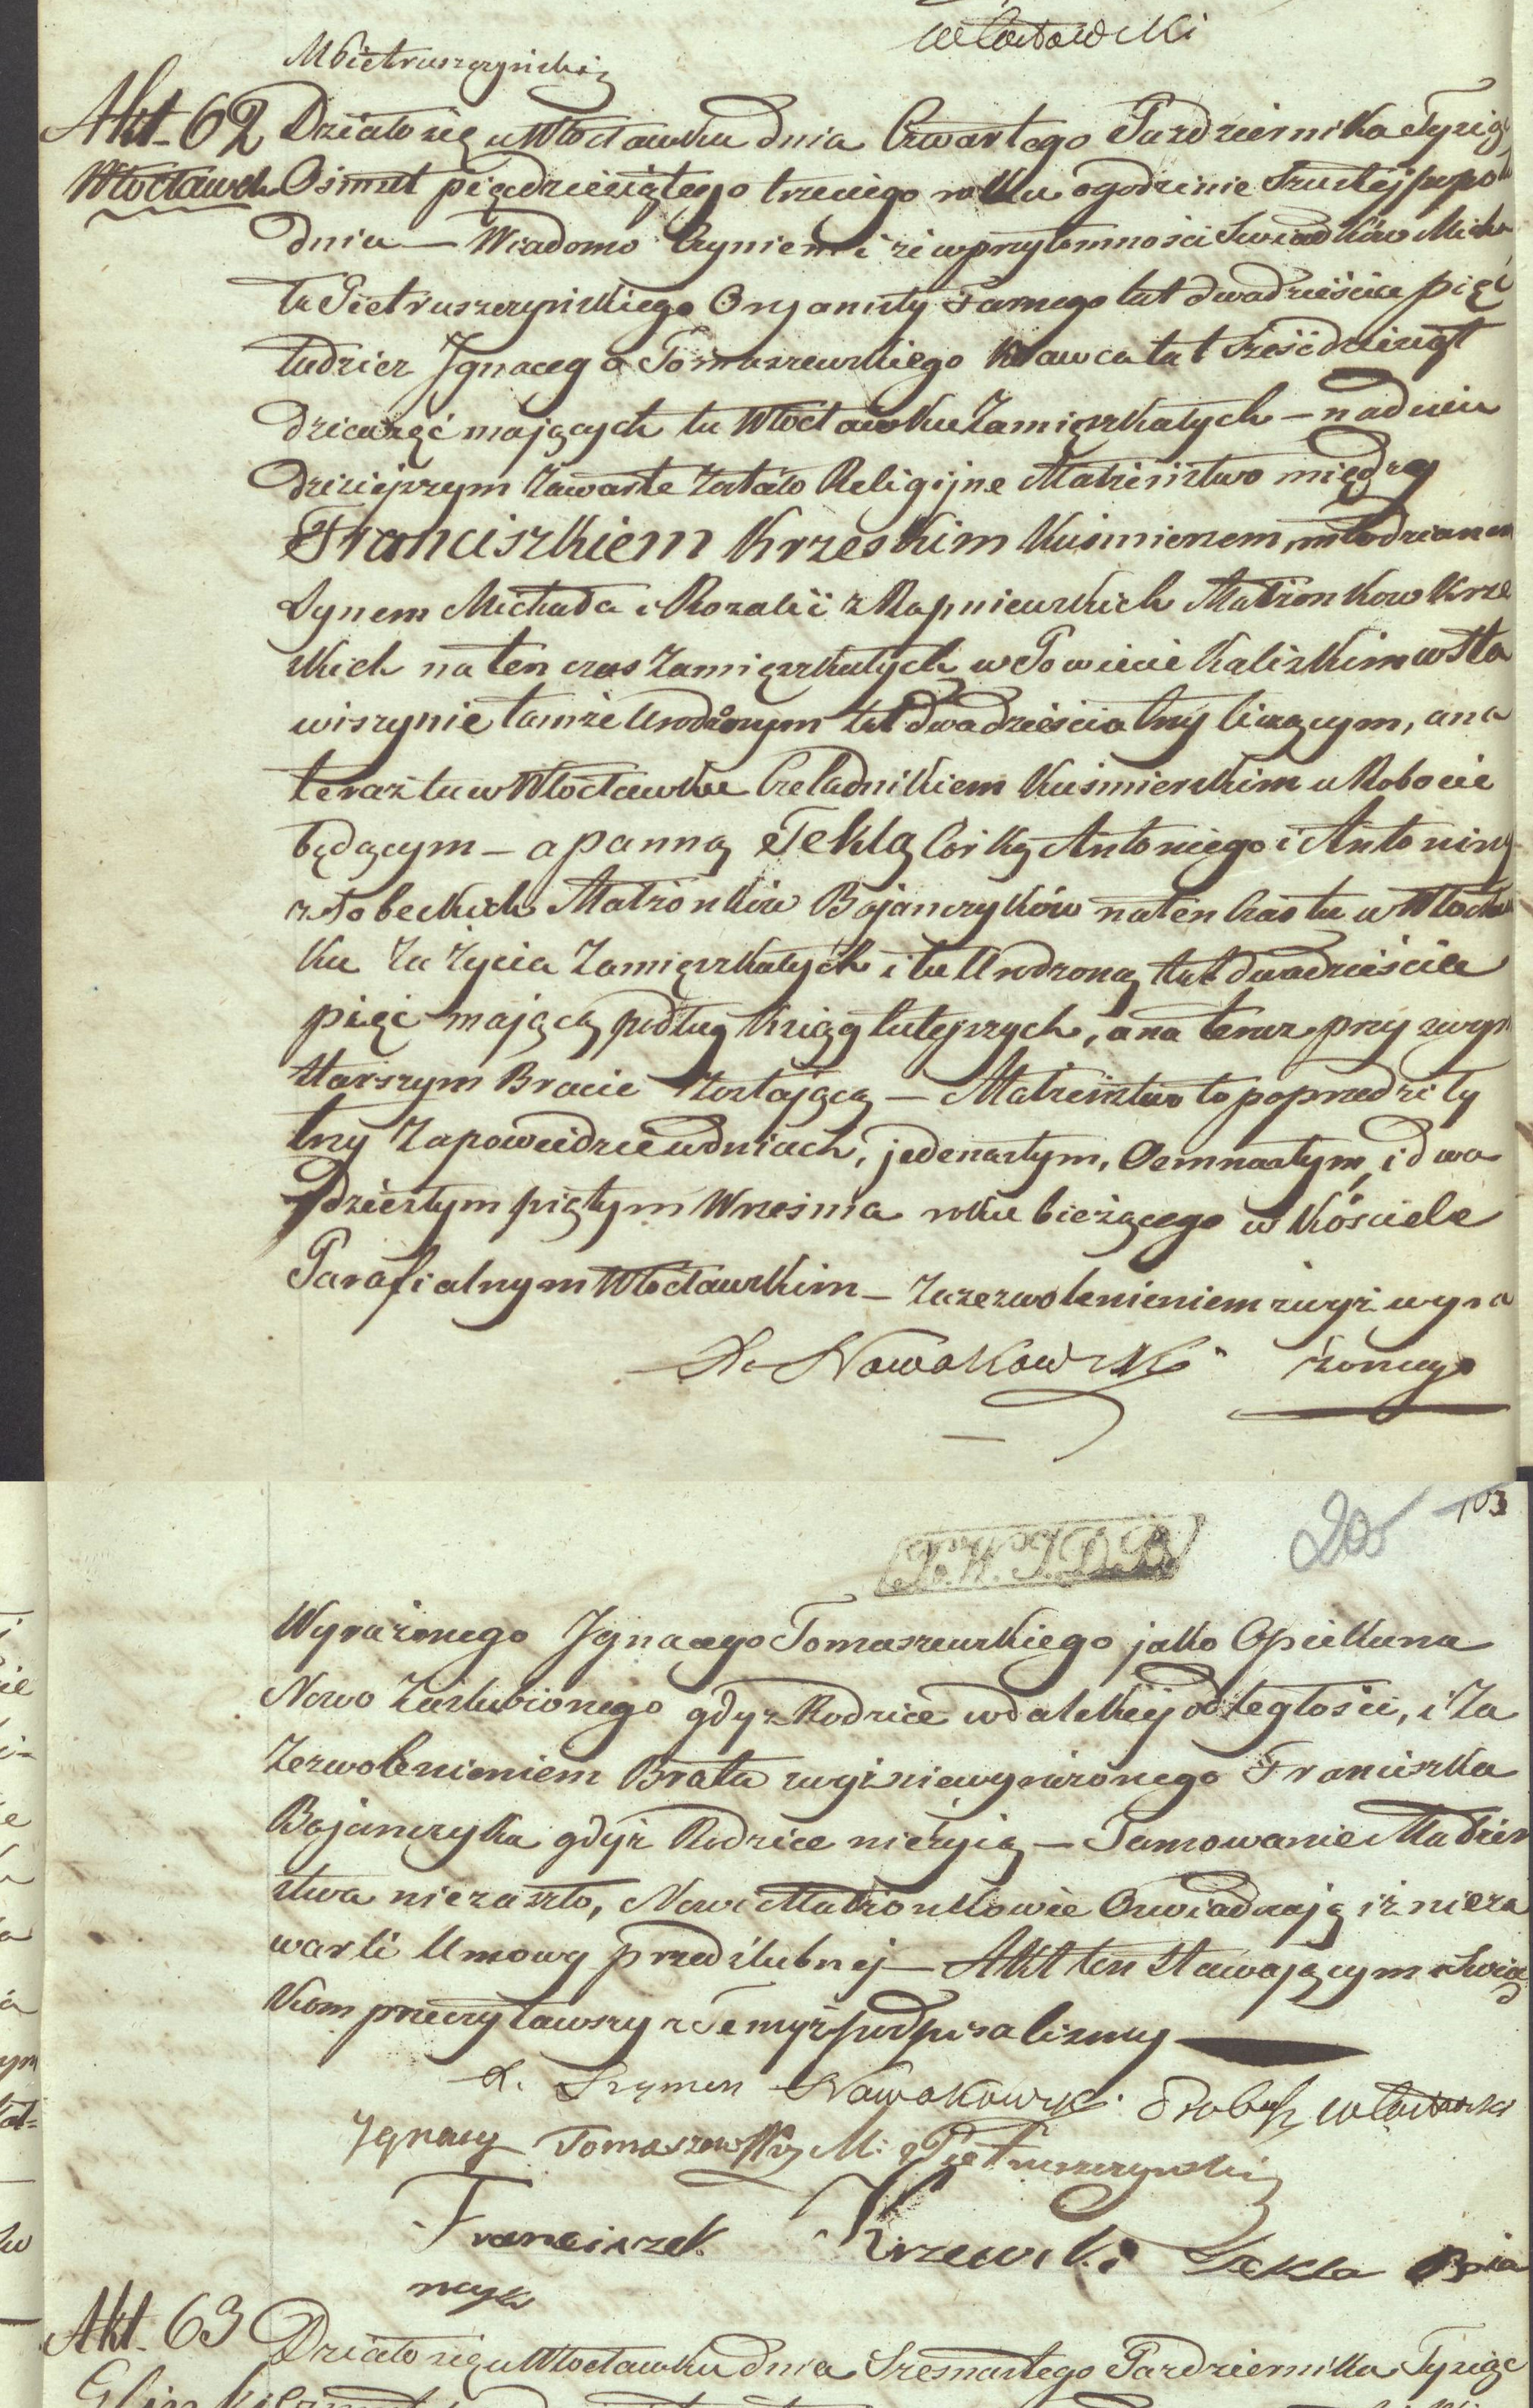 Włocławski
MPietruszczyński
Akt. 62 Działo się w Włocławku dnia Czwartego Pazdziernika Tysiąc
Włocławek Ośmset pięcdziesiątego trzeciego roku o godzinie Szustej popołu
dniu — Wiadomo Czyniemi że w przytomności Swiadków Micha
ła Pietruszczyńskiego Organisty Farnego lat dwadzieścia pięć
tudzież Jgnacego Tomaszewskiego Krawca lat Sześcdziesiąt
dziewięć mających tu Włocławku Zamięszkałych — na dniu
dzisiejszym Zawarte Zostało Religijne Małżeństwo między
Franciszkiem Krzeskim Kuśmierzem, młodzianem
Synem Michała i Rozalii z Rapniewskich Małżonkow Krze
skich na ten czas Zamięszkałych w Powiecie Kaliskim w Sta
wiszynie tamże Urodzonym lat dwadzieścia trzy liczącym, a na
teraz tu w Włocławku Czeladnikiem Kuśmierskim w Robocie
będącym — a panną Teklą Córką Antoniego i Antoniny
z Łobeckich Małżonków Bojanczyków na ten Czas tu w Włocław
ku Za Życia Zamięszkałych i tu Urodzoną lat dwadzieścia
pięć mającą podług Ksiąg tutejszych, a na teraz przy swym
starszym Bracie zostającą — Małżeństwo to poprzedziły
trzy Zapowiedzie w dniach, jedenastym, Osmnastym, i dwa
dziestym piątym Wrzesnia roku bieżącego w Kościele
Parafialnym Włocławskim — Za zezwolenieniem zwyż wyra
X. Nowakowski żonego
103
205
P.W.J.D.B.
Wyrażonego Jgnacego Tomaszewskiego jako Opiekuna
Nowo Zaslubionego gdyż Rodzice w dalekiej odległości, i Za
Zezwolenieniem Brata zwyż niewyrażonego Franciszka
Bojanczyka gdyż Rodzice nieżyią — Tamowanie Małżeń
stwa nie zaszło, Nowi Małżonkowie Oswiadczają iż nieza
warli Umowy przedślubnej — Akt ten Stawającym i Swiad
kom przeczytawszy z Temyż podpisalismy
X. Szymon Nowakowski Proboszcz Włocławski
Jgnacy Tomaszewski M. Pietruszczyński
Franciszek Krzewski Tekla Boia
nczyk
Akt. 63 Działo się w Włocławku dnia Szesnastego Pazdziernika Tysiąc